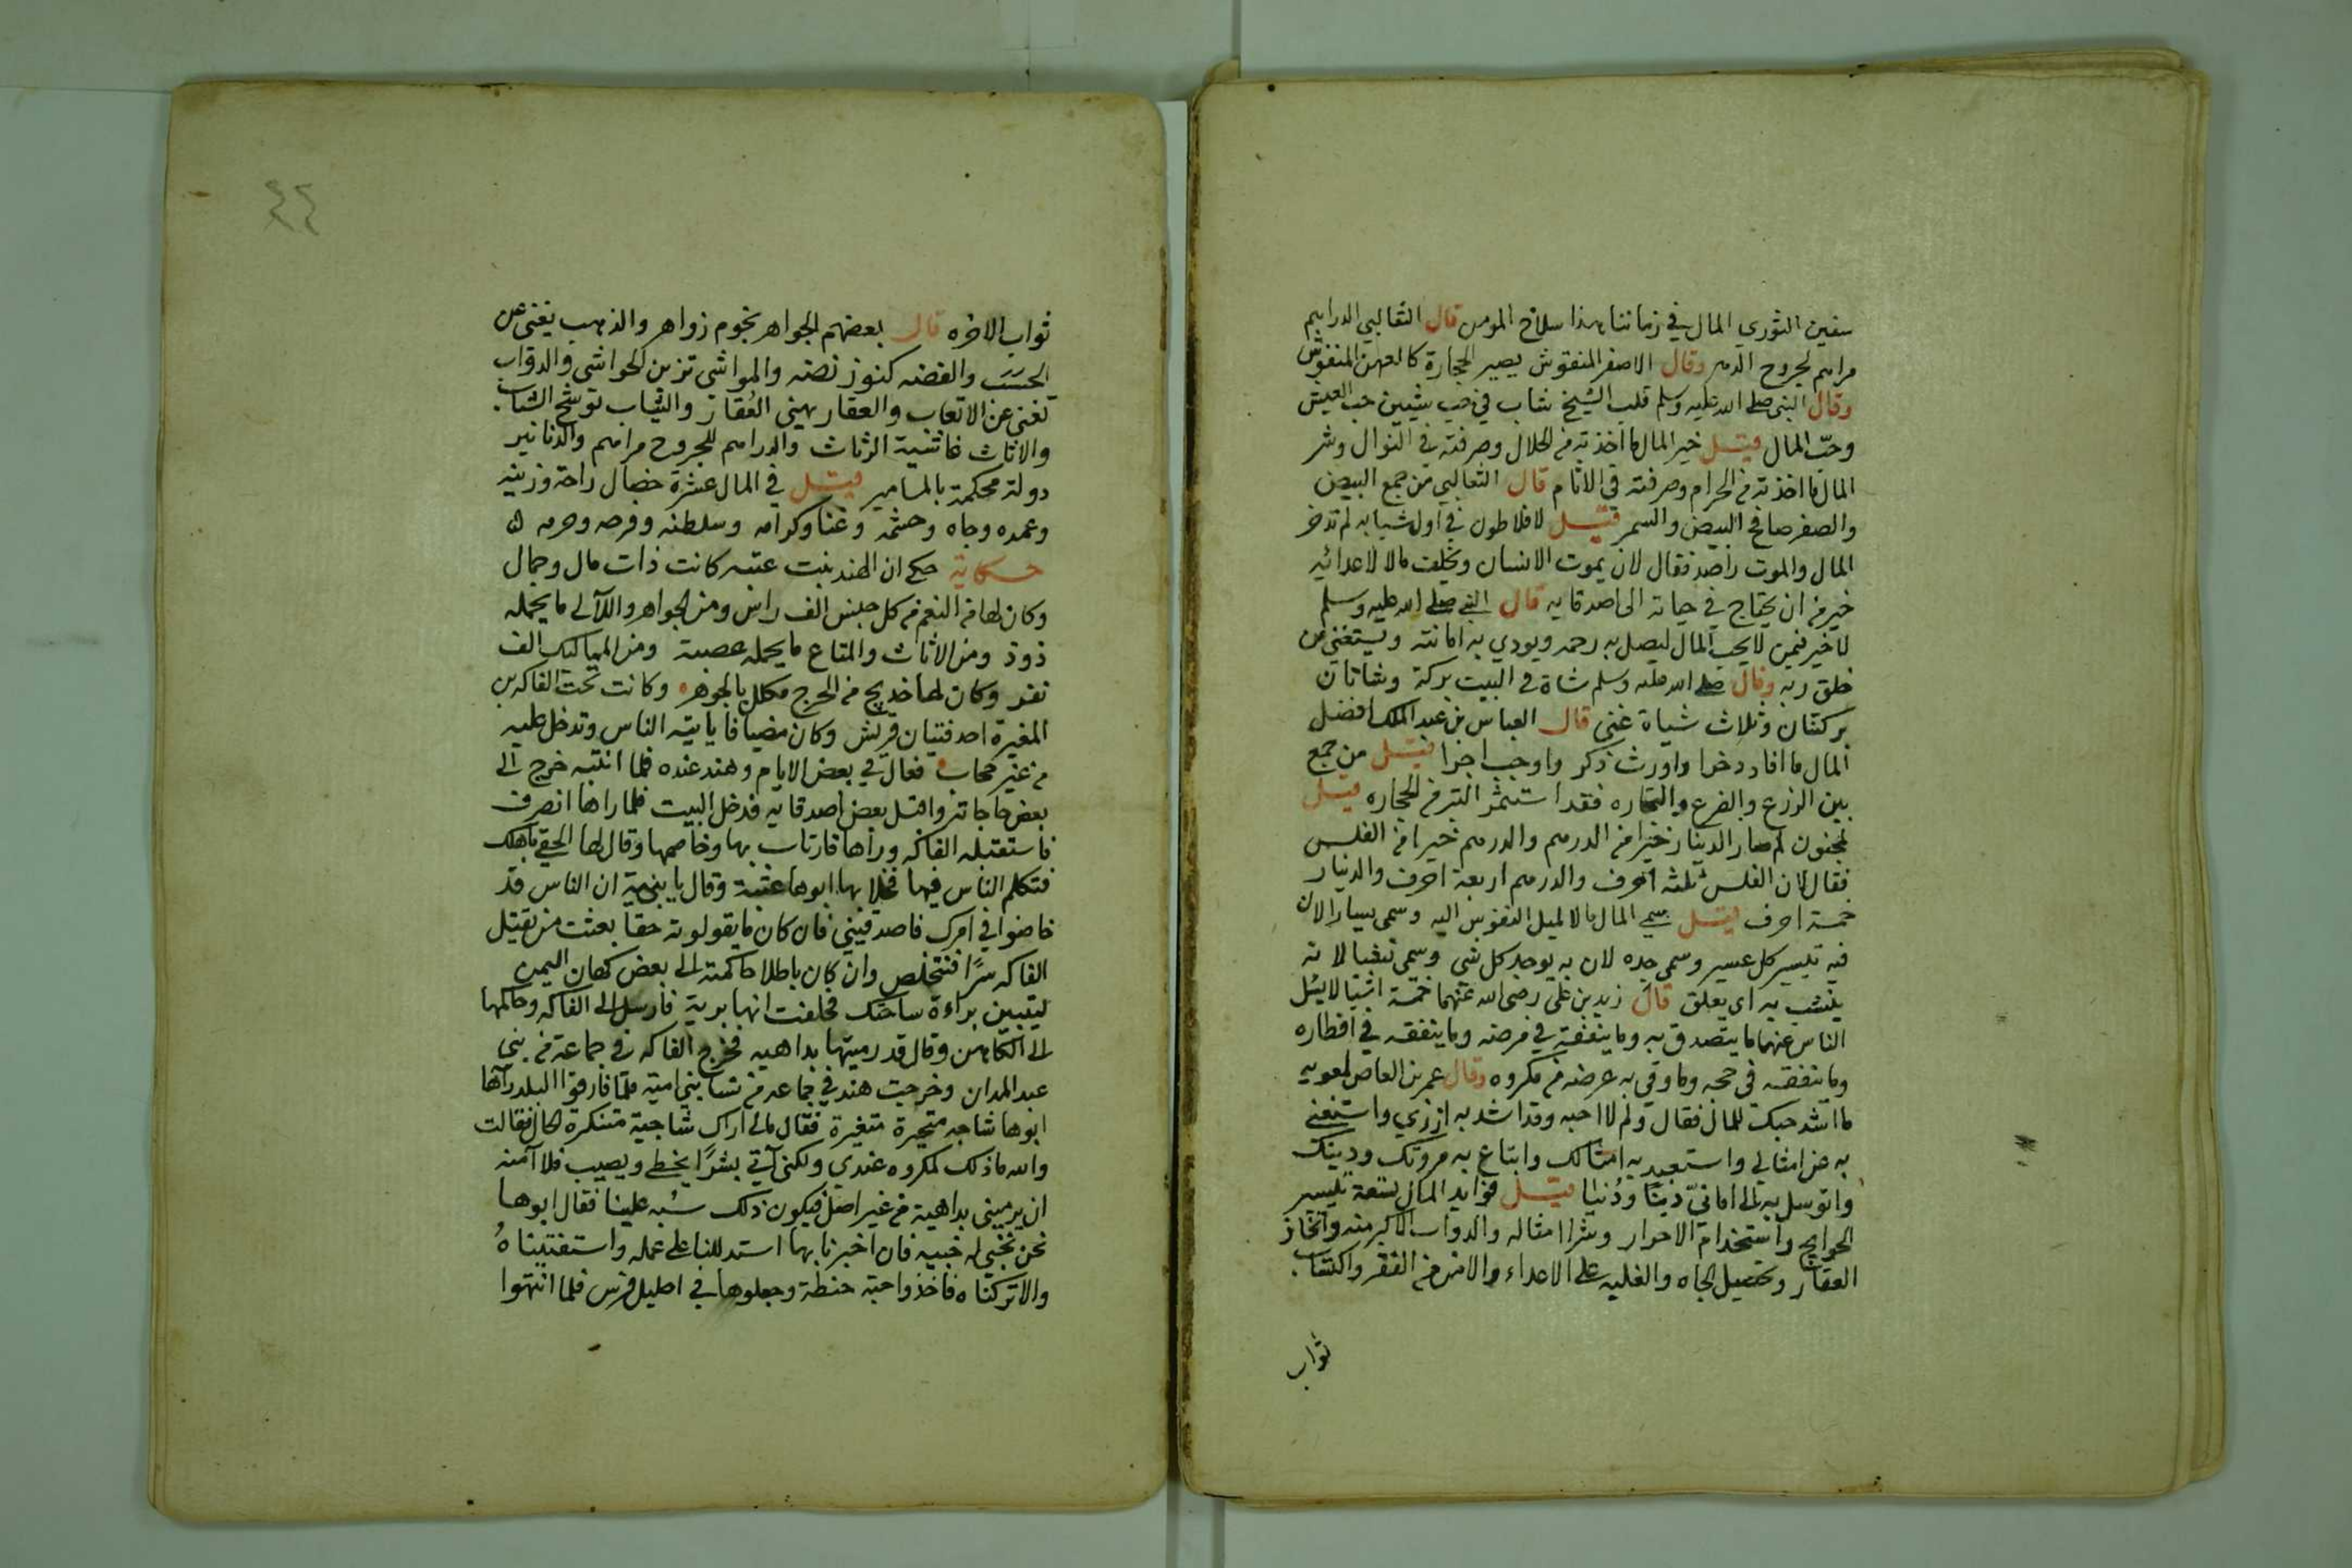 سفين الثوري المال في زماننا هذا سلاح المومن قال الثعالبي الدراهم
مراهم لجروح الدهر وقال الاصفر المنقوش يصير الحجارة كالعهن المنفوش
وقال النبي صلى الله عليه وسلم قلب الشيخ شاب في حب شيئين حب العيش
وحبّ المال قيل خير المال ما اخذته من الحلال وصرفته في النوال وشر
المال ما اخذته من الحرام وصرفته في الاثام قال الثعالبي من جمع البيض
والصفر صافح البيض والسمر قيل لافلاطون في اول شبابه لم تدخر
المال والموت راصد فقال لان يموت الانسان ويخلف مالا لاعدائه
خير من ان يحتاج في حياته الى اصدقايه قال النبي صلى الله عليه وسلم
لا خير فيمن لا يحب المال ليصل به رحمه ويودي به امانته ويستغني عن
خلق ربه وقال صلى الله عليه وسلم شاة في البيت بركة وشاتان
بركتان وثلاث شياة غنى قال العباس بن عبد الملك افضل
المال ما افاد دخرا واورث ذكر واوجب اجرا قيل من جمع
بين الزرع والضرع والتجاره فقد استثمر التبر من الحجاره قيل
لمجنون لم صار الدينار خيرا من الدرهم والدرهم خيرا من الفلس
فقال لان الفلس ثلثه احرف والدرهم اربعة احرف والدينار
خمسة احرف قيل سمي المال مالا لميل النفوس اليه وسمي يسارا لان
فيه تيسير كل عسير وسمي جده لان به يوجد كل شي وسمي نشبا لانه
ينشب به اي يعلق قال زيد بن علي رضى الله عنهما خمسة اشيا لا يسئل
الناس عنهما ما يتصدق به وما ينفقه في مرضه وما ينفقه في افطاره
وما ينفقه في حجه وما وقي به عرضه من مكروه وقال عمر بن العاص لمعويه
ما اشد حبك للمال فقال ولم لا احبه وقد اشد به ازري واستغني
به عن امثالي واستعبد به امثالك وابتاع به مروتك ودينك
واتوسل به الى امانيّ دينا ودُنيا قيل فوايد المال تسعة تيسير
الحوايج واستخدام الاحرار وشرا امثاله والدواب الاكبر منه واتخاذ
العقار وتحصيل الجاه والغلبه على الاعداء والامن من الفقر واكتساب
ثواب
٤٢
ثواب الاخره قال بعضهم الجواهر نجوم زواهر والذهب يغني عن
الحسَب والفضه كنوز نضه والمواشي تزين الحواشي والدواب
تغني عن الاتعاب والعقار يهني العُقار والثياب توشح الشباب
والاثاث غاشية الرثاث والدراهم للجروح مراهم والدنانير
دولة محكمة بالمسامير قيل في المال عشرة خصال راحة وزينة
وعمده وجاه وحشمة وغنا وكرامه وسلطنه وفرحه وحرمه
حكاية حكي ان الهند بنت عتبه كانت ذات مال وجمال
وكان لها من النعم من كل جنس الف راس ومن الجواهر واللآلي ما يحمله
ذود ومن الاثاث والمتاع ما يحمله عصبة ومن المماليك الف
نفر وكان لها خديج من الحرج مكلل بالجوهر وكانت تحت الفاكه بن
المغيرة احد فتيان قريش وكان مضيافا ياتيه الناس وتدخل عليه
من غير حجاب فقال في بعض الايام وهند عنده فلما انتبه خرج الى
بعض حاجاته واقبل بعض اصدقايه فدخل البيت فلما راها انصرف
فاستقبله الفاكه وراها فارتاب بها وخاصمها وقال لها الحقي باهلك
فتكلم الناس فيها فخلا بها ابوها عتبة وقال يا بنيه ان الناس قد
خاضوا في امرك فاصدقيني فان كان ما يقولونه حقا بعثت من يقتل
الفاكه سرًا فنتخلص وان كان باطلا حاكمته الى بعض كهان اليمن
ليتبين براءة ساحتك فحلفت انها برية فارسل الى الفاكه وحاكمها
الى الكاهن وقال قد رميتها بداهيه فخرج الفاكه في جماعة من بني
عبد المدان وخرجت هند في جماعه من نسا بني امية فلما فارقوا البلد رآها
ابوها شاجه متحيرة متغيرة فقال مالي اراك شاجية متنكرة الحال فقالت
والله ما ذلك لمكروه عندي ولكني آتي بشرًا يخطى ويصيب فلا آمنه
ان يرميني بداهية من غير اصل فيكون ذلك سُبه علينا فقال ابوها
نحن نخبي له خبيه فان اخبرنا بها استدللنا على عمله واستفتيناهُ
والا تركناه فاخذوا حبة حنطة وجعلوها في احليل فرس فلما انتهوا